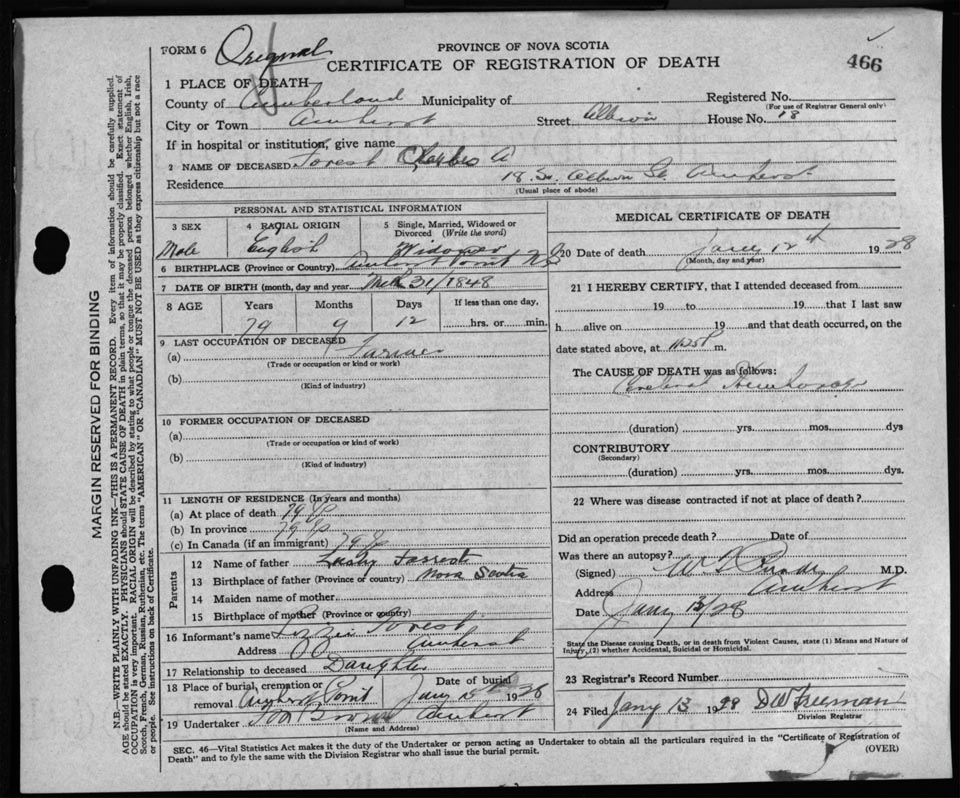 FORM 6
Original
PROVINCE OF NOVA SCOTIA
CERTIFICATE OF REGISTRATION OF DEATH
466
1 PLACE OF DEATH
County of Cumberland Municipality of
Registered No.
(For use of Registrar General only)
City or Town Amherst Street Albion House No. 18
If in hospital or institution, give name
2 NAME OF DECEASED Forest Charles A
Residence 18 So. Albion St. Amherst
(Usual place of abode)
PERSONAL AND STATISTICAL INFORMATION
3 SEX
Male
4 RACIAL ORIGIN
English
5 Single, Married, Widowed or Divorced (Write the word)
Widower
6 BIRTHPLACE (Province or Country) Amherst Point N S
7 DATE OF BIRTH (month, day and year) Mch 31/1848
8 AGE Years Months Days If less than one day,
79 9 12 hrs. or min.
9 LAST OCCUPATION OF DECEASED
(a) Farmer
(Trade or occupation or kind or work)
(b)
(Kind of industry)
10 FORMER OCCUPATION OF DECEASED
(a)
(Trade or occupation or kind of work)
(b)
(Kind of industry)
11 LENGTH OF RESIDENCE (In years and months)
(a) At place of death 79
(b) In province 79
(c) In Canada (if an immigrant) 79
Parents
12 Name of father Forrest
13 Birthplace of father (Province or country) Nova Scotia
14 Maiden name of mother
15 Birthplace of mother (Province or country)
16 Informant's name Lizzie Forest
Address Amherst
17 Relationship to deceased Daughter
18 Place of burial, cremation or removal Amherst Point
Date of burial Jany 19
19 Undertaker Amherst
(Name and Address)
MEDICAL CERTIFICATE OF DEATH
20 Date of death Jany 12th 1928
(Month, day and year)
21 I HEREBY CERTIFY, that I attended deceased from
19 to 19 that I last saw
h alive on 19 and that death occurred, on the
date stated above, at m.
The CAUSE OF DEATH was as follows:
Cerebral Hemhorage
(duration) yrs. mos. dys
CONTRIBUTORY
(Secondary)
(duration) yrs. mos. dys.
22 Where was disease contracted if not at place of death?
Did an operation precede death? Date of
Was there an autopsy?
(Signed) M.D.
Address Amherst
Date Jany 13/28
State the Disease causing Death, or in death from Violent Causes, state (1) Means and Nature of
Injury, (2) whether Accidental, Suicidal or Homicidal.
23 Registrar's Record Number
24 Filed Jany 13 1928 D W Freeman
Division Registrar
SEC. 46—Vital Statistics Act makes it the duty of the Undertaker or person acting as Undertaker to obtain all the particulars required in the "Certificate of Registration of
Death" and to fyle the same with the Division Registrar who shall issue the burial permit.
(OVER)
MARGIN RESERVED FOR BINDING
N.B.—WRITE PLAINLY WITH UNFADING INK—THIS IS A PERMANENT RECORD. Every item of information should be carefully supplied.
AGE should be stated EXACTLY. PHYSICIANS should STATE CAUSE OF DEATH in plain terms, so that it may be properly classified. Exact statement of
OCCUPATION is very important. RACIAL ORIGIN will be described by stating to what people or tongue the deceased person belonged whether English, Irish,
Scotch, French, German, Russian, Ruthenian, etc. The terms "AMERICAN" or "CANADIAN" MUST NOT BE USED as they express citizenship but not a race
or people. See instructions on back of Certificate.